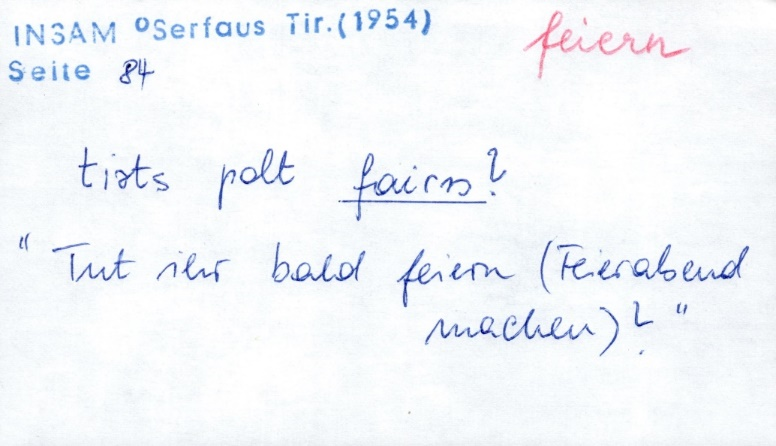 INSAM °Serfaus Tir.(1954)
feiern
Seite 84
tiəts polt fairn?
"Tut ihr bald feiern (Feierabend
machen)?"